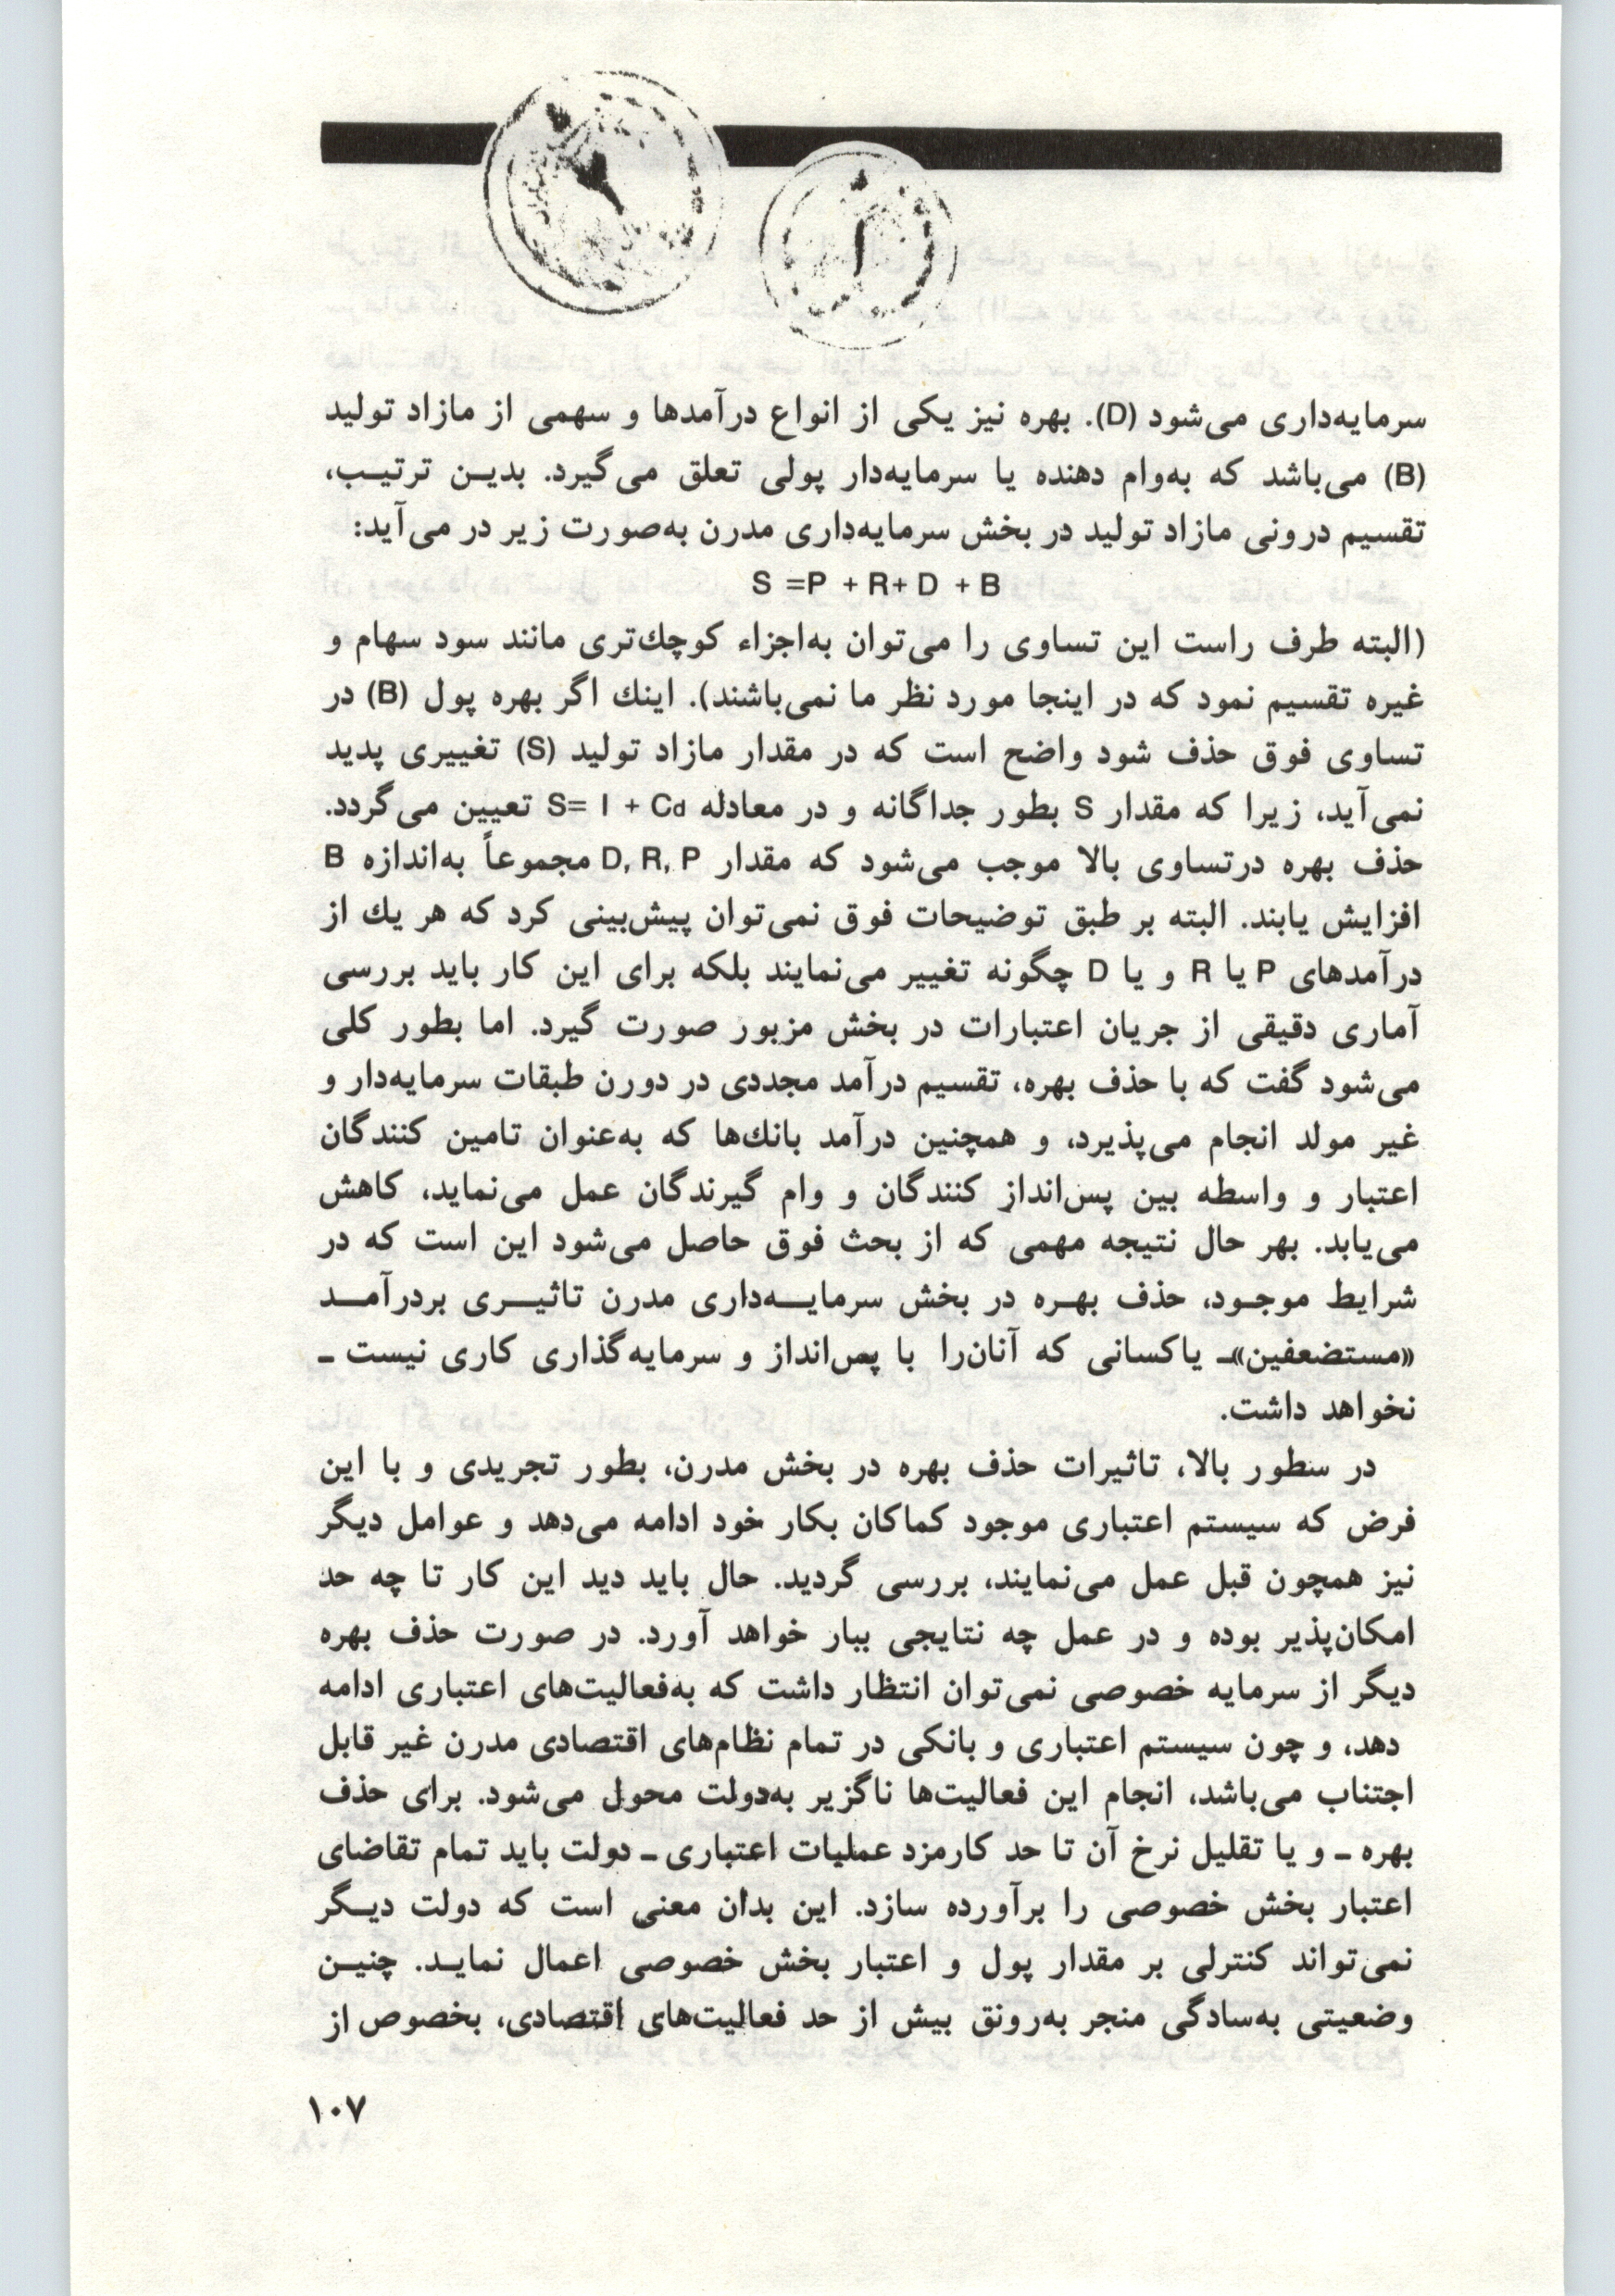 سرمایه‌داری می‌شود (D). بهره نیز یکی از انواع درآمدها و سهمی از مازاد تولید
(B) می‌باشد که به‌وام دهنده یا سرمایه‌دار پولی تعلق می‌گیرد. بدیـن ترتیـب،
تقسیم درونی مازاد تولید در بخش سرمایه‌داری مدرن به‌صورت زیر در می‌آید:
S =P + R+ D + B
(البته طرف راست این تساوی را می‌توان به‌اجزاء کوچك‌تری مانند سود سهام و
غیره تقسیم نمود که در اینجا مورد نظر ما نمی‌باشند). اینك اگر بهره پول (B) در
تساوی فوق حذف شود واضح است که در مقدار مازاد تولید (S) تغییری پدید
نمی‌آید، زیرا که مقدار S بطور جداگانه و در معادله S= I + Cd تعیین می‌گردد.
حذف بهره درتساوی بالا موجب می‌شود که مقدار D, R, P مجموعاً به‌اندازه B
افزایش یابند. البته بر طبق توضیحات فوق نمی‌توان پیش‌بینی کرد که هر یك از
درآمدهای P یا R و یا D چگونه تغییر می‌نمایند بلکه برای این کار باید بررسی
آماری دقیقی از جریان اعتبارات در بخش مزبور صورت گیرد. اما بطور کلی
می‌شود گفت که با حذف بهره، تقسیم درآمد مجددی در دورن طبقات سرمایه‌دار و
غیر مولد انجام می‌پذیرد، و همچنین درآمد بانك‌ها که به‌عنوان تامین کنندگان
اعتبار و واسطه بین پس‌انداز کنندگان و وام گیرندگان عمل می‌نماید، کاهش
می‌یابد. بهر حال نتیجه مهمی که از بحث فوق حاصل می‌شود این است که در
شرایط موجـود، حذف بهـره در بخش سرمایـــه‌داری مدرن تاثیــری بردرآمــد
«مستضعفین»ـ یاکسانی که آنان‌را با پس‌انداز و سرمایه‌گذاری کاری نیست ـ
نخواهد داشت.
در سطور بالا، تاثیرات حذف بهره در بخش مدرن، بطور تجریدی و با این
فرض که سیستم اعتباری موجود کماکان بکار خود ادامه می‌دهد و عوامل دیگر
نیز همچون قبل عمل می‌نمایند، بررسی گردید. حال باید دید این کار تا چه حد
امکان‌پذیر بوده و در عمل چه نتایجی ببار خواهد آورد. در صورت حذف بهره
دیگر از سرمایه خصوصی نمی‌توان انتظار داشت که به‌فعالیت‌های اعتباری ادامه
دهد، و چون سیستم اعتباری و بانکی در تمام نظام‌های اقتصادی مدرن غیر قابل
اجتناب می‌باشد، انجام این فعالیت‌ها ناگزیر به‌دولت محول می‌شود. برای حذف
بهره ـ و یا تقلیل نرخ آن تا حد کارمزد عملیات اعتباری ـ دولت باید تمام تقاضای
اعتبار بخش خصوصی را برآورده سازد. این بدان معنی است که دولت دیـگر
نمی‌تواند کنترلی بر مقدار پول و اعتبار بخش خصوصی اعمال نمایـد. چنیـن
وضعیتی به‌سادگی منجر به‌رونق بیش از حد فعالیت‌های اقتصادی، بخصوص از
۱۰۷